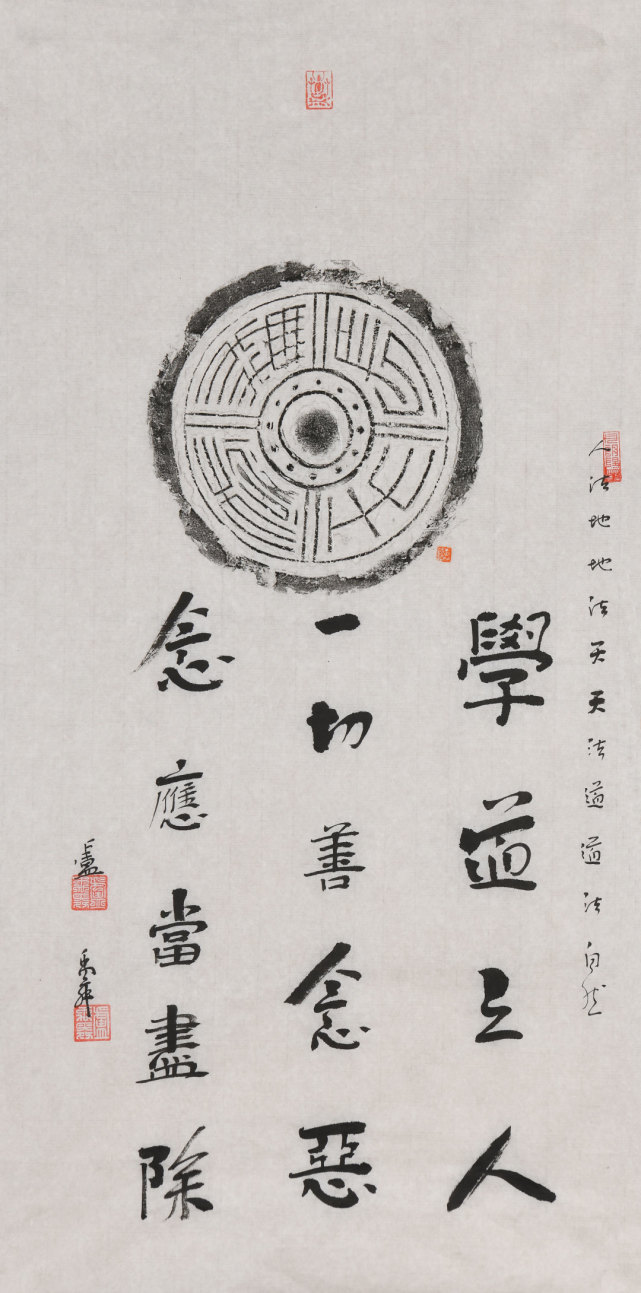 人法地地法天天法道道法自然
學道之人
一切善念惡
念應當盡除
盧